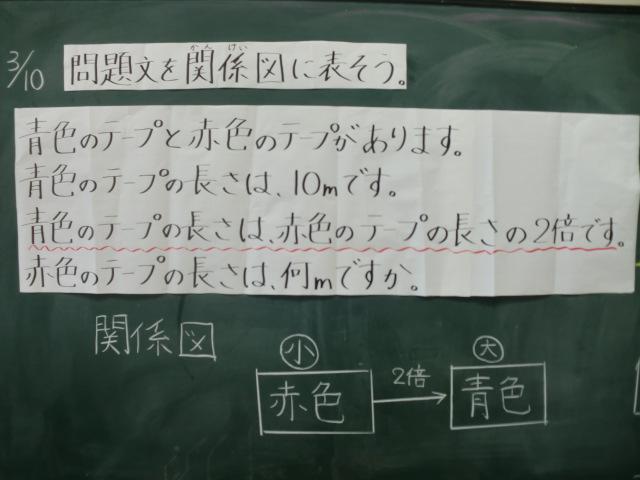 3/10
問題文を関係図に表そう。
かんけい
青色のテープと赤色のテープがあります。
青色のテープの長さは、10mです。
青色のテープの長さは、赤色のテープの長さの2倍です。
赤色のテープの長さは、何mですか。
関係図
小 大
赤色 2倍 青色